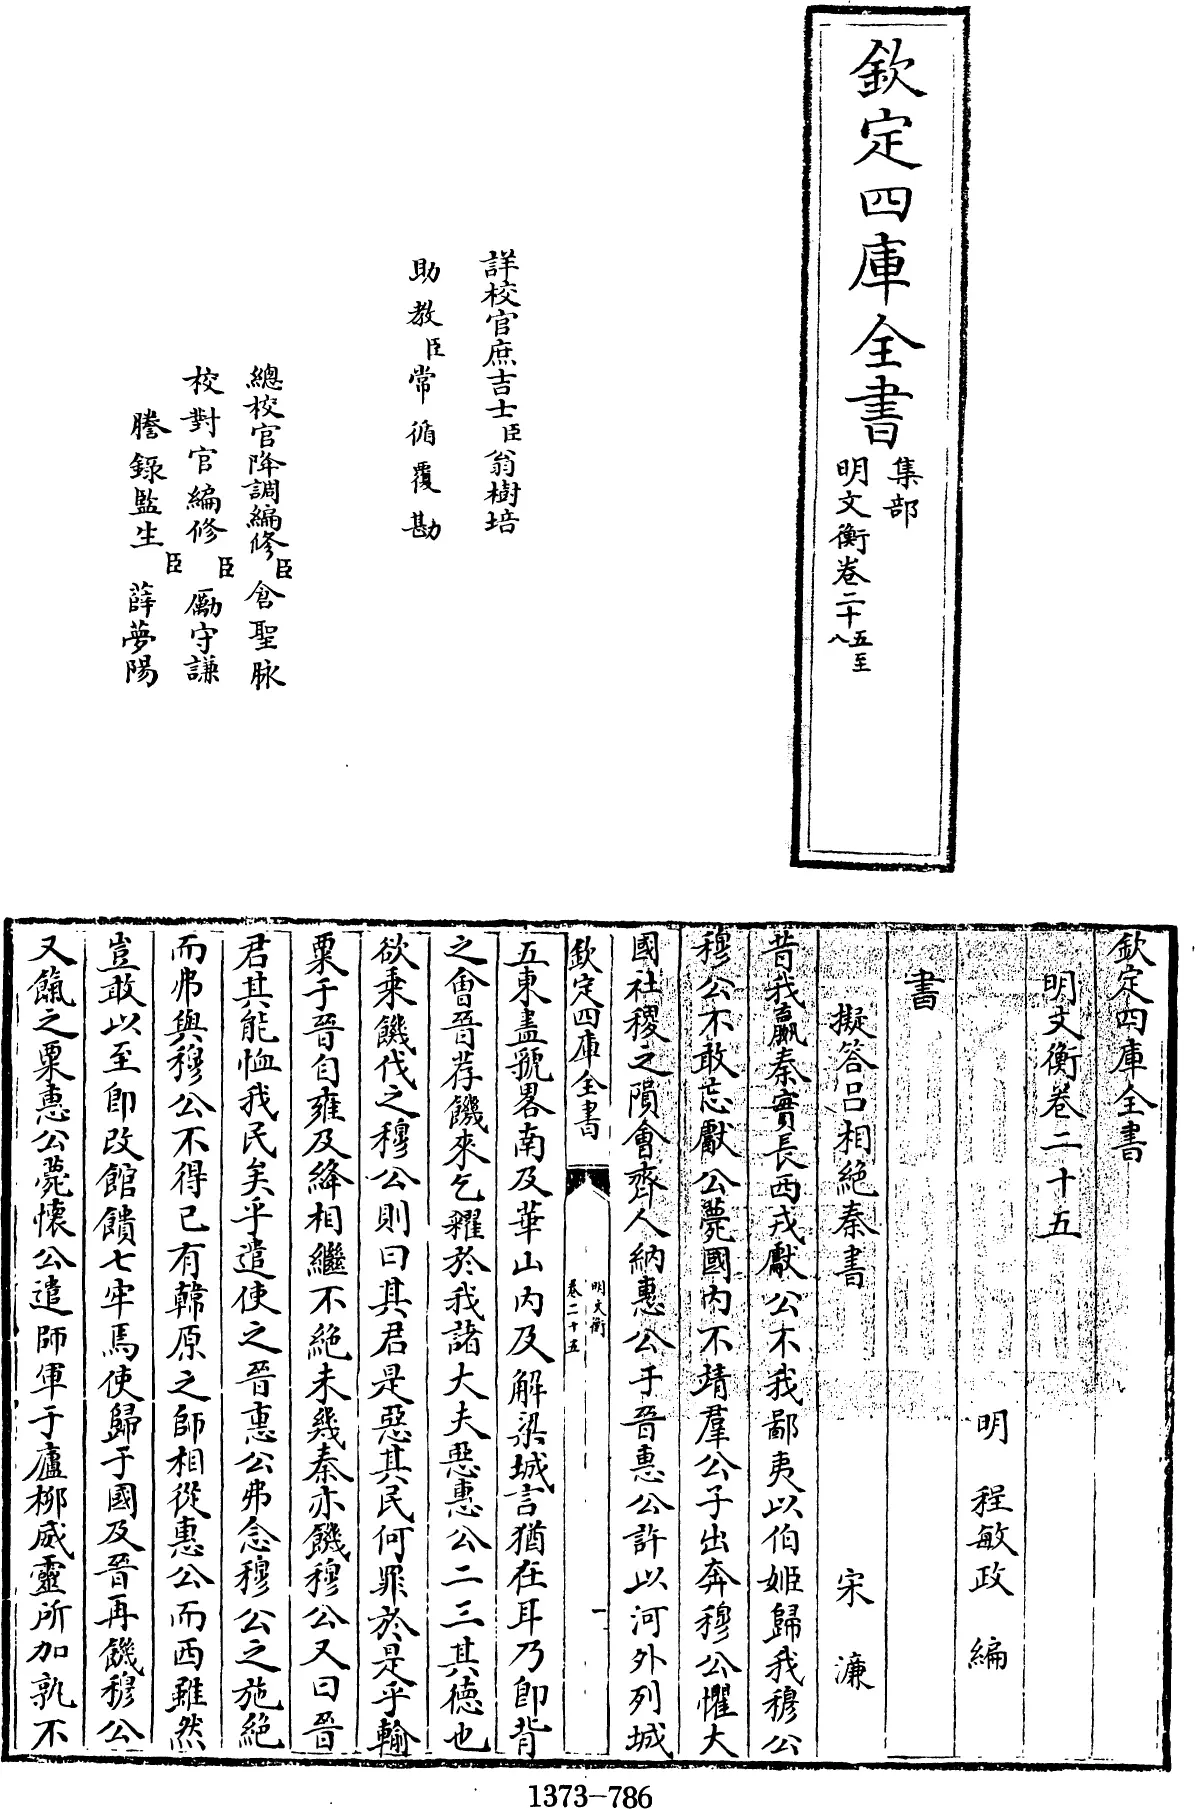 欽定四庫全書
集部
明文衡卷二十五至
八
詳校官庶吉士臣翁樹培
助教臣常循覆勘
總校官降調編修臣倉聖脉
校對官編修臣勵守謙
謄錄監生臣薛夢陽
欽定四庫全書
明文衡卷二十五
明 程敏政 編
書
擬答呂相絶秦書 宋濂
昔我嬴秦實長西戎獻公不我鄙夷以伯姬歸我穆公
穆公不敢忘獻公薨國内不靖羣公子出奔穆公懼大
國社稷之隕會齊人納惠公于晉惠公許以河外列城
欽定四庫全書
明文衡
卷二十五
一
五東盡虢畧南及華山内及解梁城言猶在耳乃卽背
之會晉荐饑來乞糴於我諸大夫惡惠公二三其德也
欲乗饑伐之穆公則曰其君是惡其民何罪於是乎輸
粟于晉自雍及絳相繼不絶未幾秦亦饑穆公又曰晉
君其能恤我民矣乎遣使之晉惠公弗念穆公之施絶
而弗與穆公不得已有韓原之師相從惠公而西雖然
豈敢以至卽改館饋七牢焉使歸于國及晉再饑穆公
又餼之粟惠公薨懷公遣師軍于廬栁威靈所加孰不
1373-786